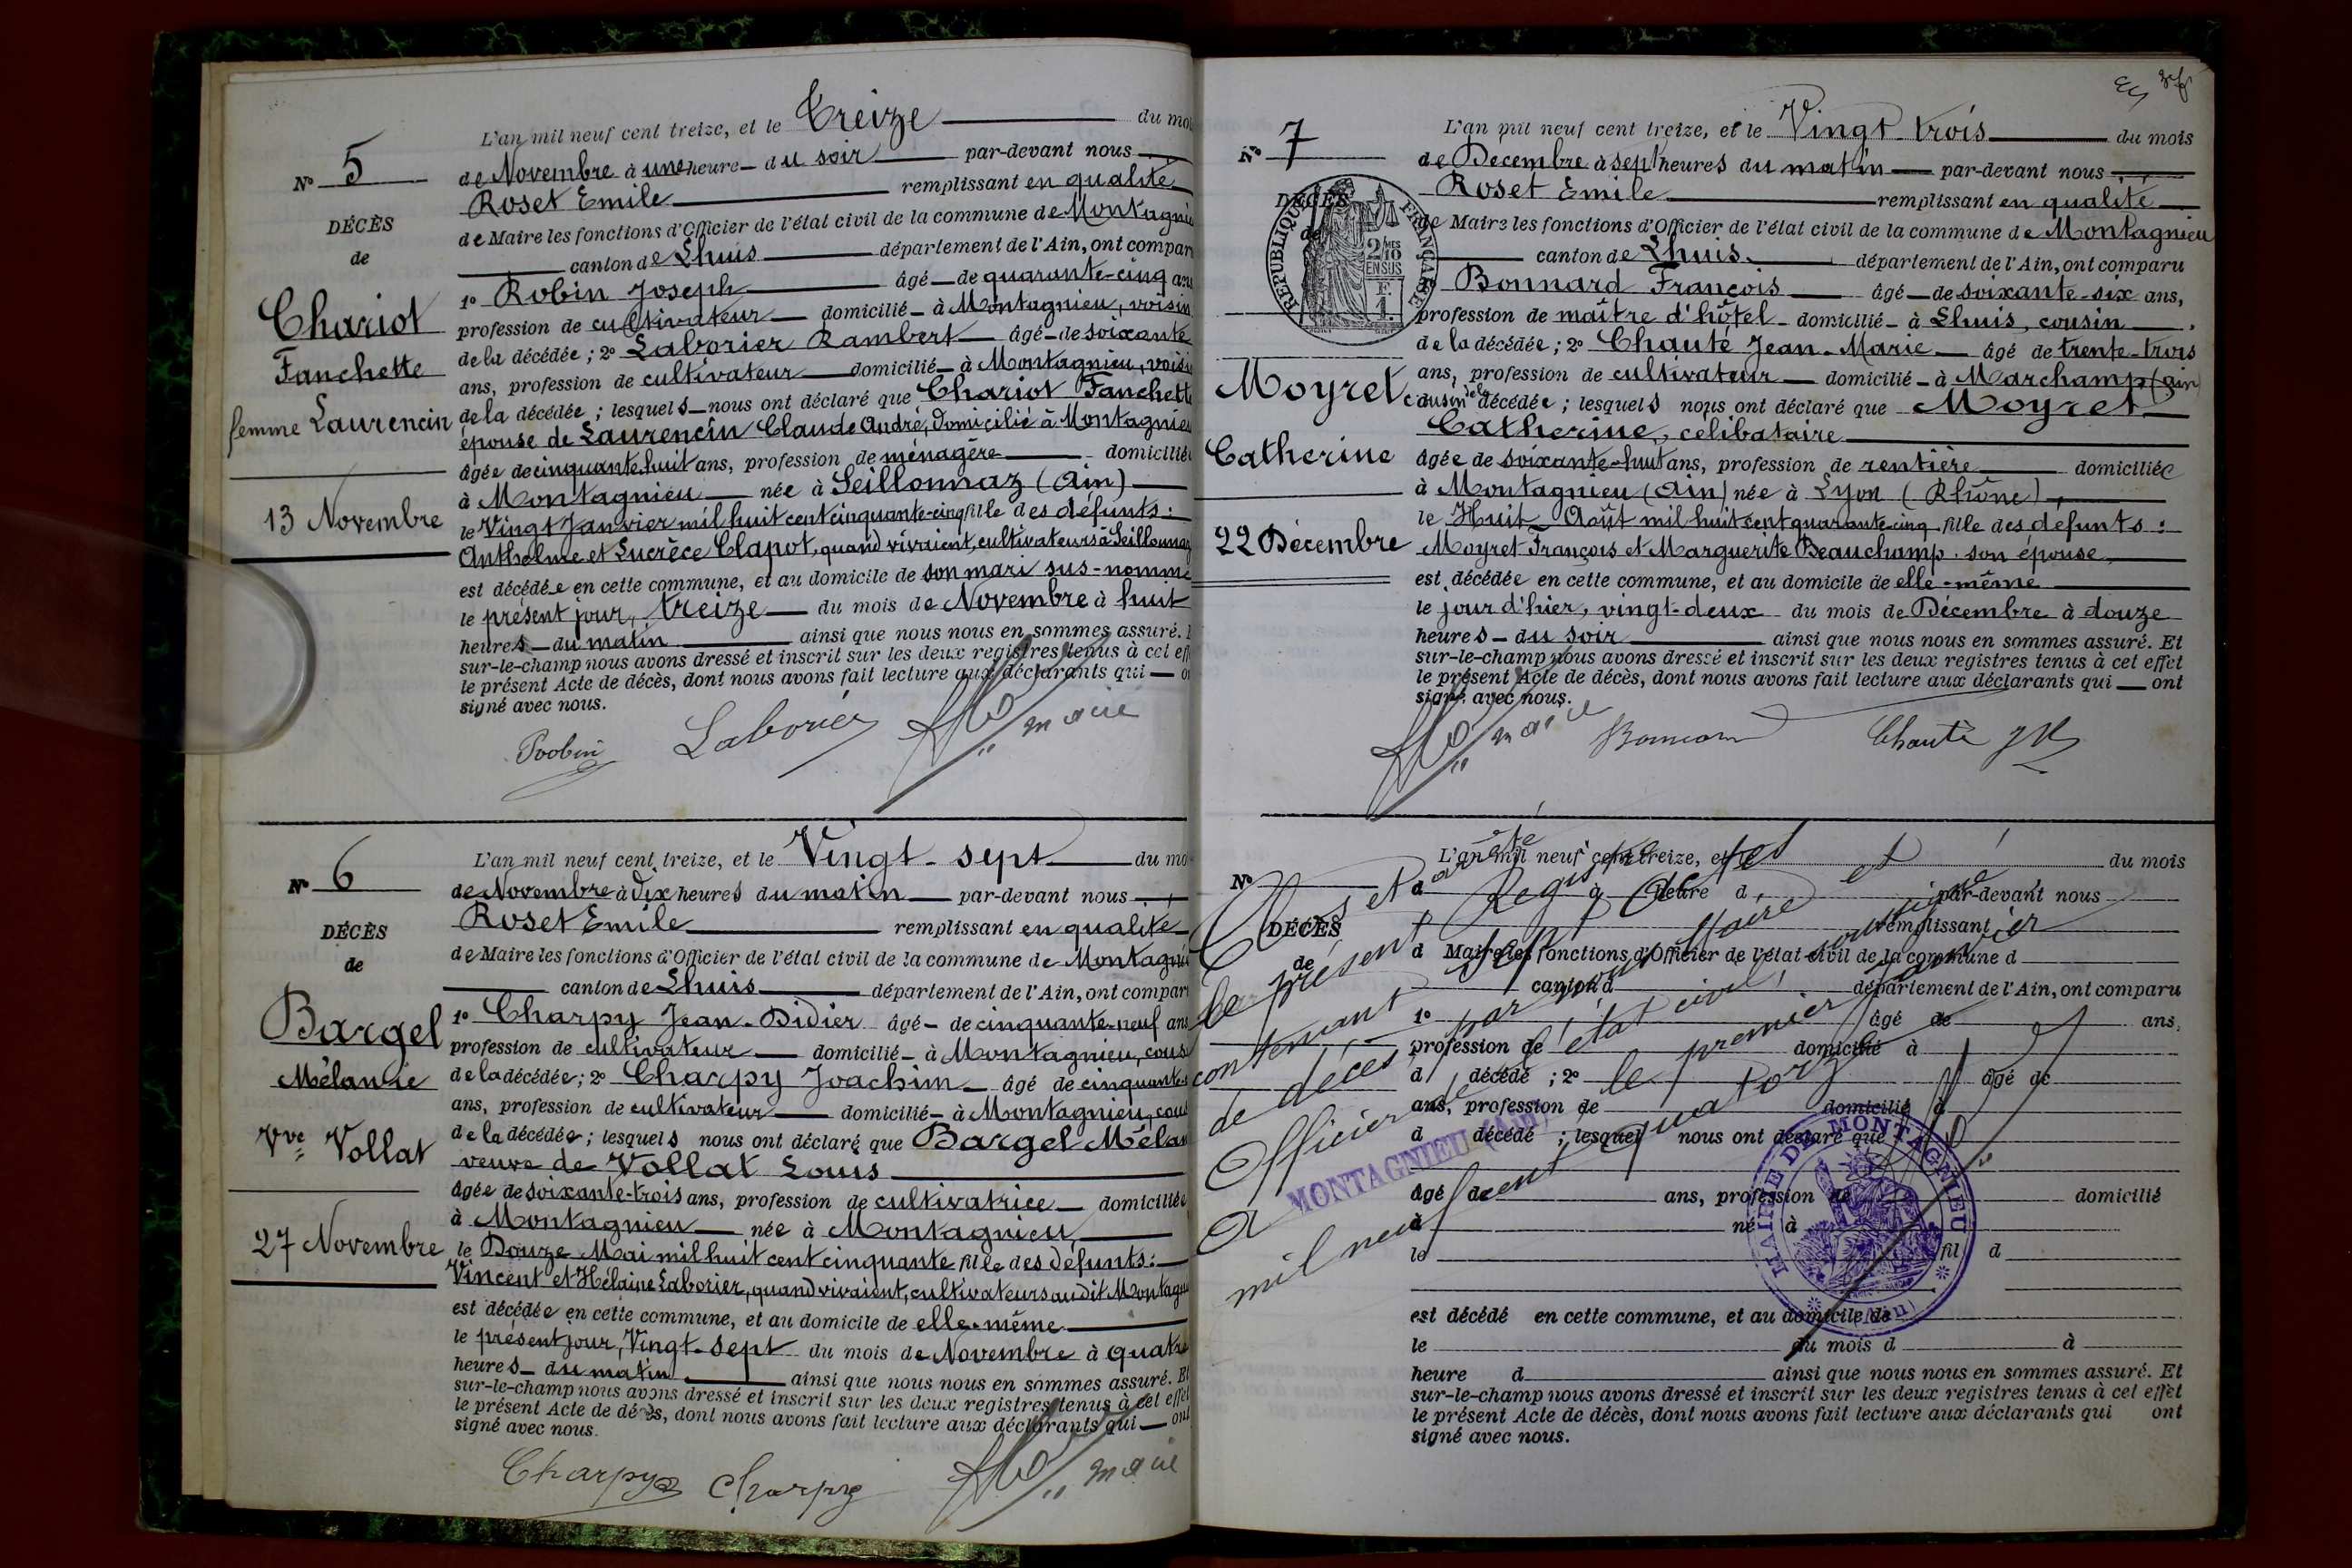 L'an mil neuf cent treize, et le Treize du moi
N° 5
de Novembre à une heure du soir par-devant nous
Roset Emile remplissant en qualité
DÉCÈS
de Maire les fonctions d'Officier de l'état civil de la commune de Montagnie
de
canton de Lhuis département de l'Ain, ont compar
1° Robin Joseph âgé de quarante-cinq ans
Chariot
profession de cultivateur domicilié à Montagnieu, voisin
de la décédée ; 2° Laborier Rambert âgé de soixante
Fanchette
ans, profession de cultivateur domicilié à Montagnieu, voisin
femme Laurencin
de la décédée ; lesquels nous ont déclaré que Chariot Fanchette
épouse de Laurencin Claude André, domicilié à Montagnieu
âgée de cinquante huit ans, profession de ménagère domiciliée
à Montagnieu née à Seillonnaz (Ain)
13 Novembre
le Vingt Janvier mil huit cent cinquante-cinq fille des défunts :
Anthelme et Lucrèce Clapot, quand vivaient, cultivateurs à Seillonnaz
est décédée en cette commune, et au domicile de son mari sus-nommé
le présent jour, treize du mois de Novembre à huit
heures du matin ainsi que nous nous en sommes assuré. E
sur-le-champ nous avons dressé et inscrit sur les deux registres tenus à cet eff
le présent Acte de décès, dont nous avons fait lecture aux déclarants qui on
signé avec nous.
Robin Laborier maire
L'an mil neuf cent treize, et le Vingt-sept du mo
N° 6
de Novembre à dix heures du matin par-devant nous
Roset Emile remplissant en qualité
DÉCÈS
de Maire les fonctions d'Officier de l'état civil de la commune de Montagnie
de
canton de Lhuis département de l'Ain, ont compar
Bargel
1° Charpy Jean-Didier âgé de cinquante-neuf ans
profession de cultivateur domicilié à Montagnieu, cous
Mélanie
de la décédée ; 2° Charpy Joachim âgé de cinquante
ans, profession de cultivateur domicilié à Montagnieu, cous
Vve Vollat
de la décédée ; lesquels nous ont déclaré que Bargel Mélan
veuve de Vollat Louis
âgée de soixante-trois ans, profession de cultivatrice domiciliée
à Montagnieu née à Montagnieu
27 Novembre
le Douze Mai mil huit cent cinquante fille des défunts :
Vincent et Hélaine Laborier, quand vivaient, cultivateurs audit Montagn
est décédée en cette commune, et au domicile de elle-même
le présent jour, Vingt-sept du mois de Novembre à quatre
heures du matin ainsi que nous nous en sommes assuré. Et
sur-le-champ nous avons dressé et inscrit sur les deux registres tenus à cet effet
le présent Acte de décès, dont nous avons fait lecture aux déclarants qui ont
signé avec nous.
Charpy Charpy maire
L'an mil neuf cent treize, et le Vingt trois du mois
N° 7
de Décembre à sept heures du matin par-devant nous
Roset Emile remplissant en qualité
DÉCÈS
de
RÉPUBLIQUE FRANÇAISE
2/10 EN SUS
F. 1.
de Maire les fonctions d'Officier de l'état civil de la commune de Montagnieu
canton de Lhuis département de l'Ain, ont comparu
Bonnard François âgé de soixante-six ans,
profession de maître d'hôtel domicilié à Lhuis, cousin
de la décédée ; 2° Chauté Jean-Marie âgé de trente-trois
Moyret
ans, profession de cultivateur domicilié à Marchamp (Ain)
cousin de la décédée ; lesquels nous ont déclaré que Moyret
Catherine, celibataire
Catherine
âgée de soixante-huit ans, profession de rentière domiciliée
à Montagnieu (Ain) née à Lyon (Rhône),
22 Décembre
le Huit Août mil huit cent quarante-cinq fille des défunts :
Moyret François et Marguerite Beauchamp son épouse
est décédée en cette commune, et au domicile de elle-même
le jour d'hier, vingt-deux du mois de Décembre à douze
heures du soir ainsi que nous nous en sommes assuré. Et
sur-le-champ nous avons dressé et inscrit sur les deux registres tenus à cet effet
le présent Acte de décès, dont nous avons fait lecture aux déclarants qui ont
signé avec nous.
maire Bonnard Chauté JM
L'an mil neuf cent treize, et le du mois
N°
d à heure d par-devant nous
remplissant
DÉCÈS
d Maire les fonctions d'Officier de l'état civil de la commune d
de
canton d département de l'Ain, ont comparu
1° âgé de ans,
profession de domicilié à
d décédé ; 2° âgé de
ans, profession de domicilié à
d décédé ; lesquel nous ont déclaré que
âgé de ans, profession de domicilié
à né à
le fil d
est décédé en cette commune, et au domicile de
le du mois d à
heure d ainsi que nous nous en sommes assuré. Et
sur-le-champ nous avons dressé et inscrit sur les deux registres tenus à cet effet
le présent Acte de décès, dont nous avons fait lecture aux déclarants qui ont
signé avec nous.
Clos et arrêté
le présent Registre
contenant sept actes
de décès par nous Maire et
Officier de l'état civil soussigné
A MONTAGNIEU (Ain) le premier Janvier
mil neuf cent quatorze
MAIRIE DE MONTAGNIEU
(Ain)